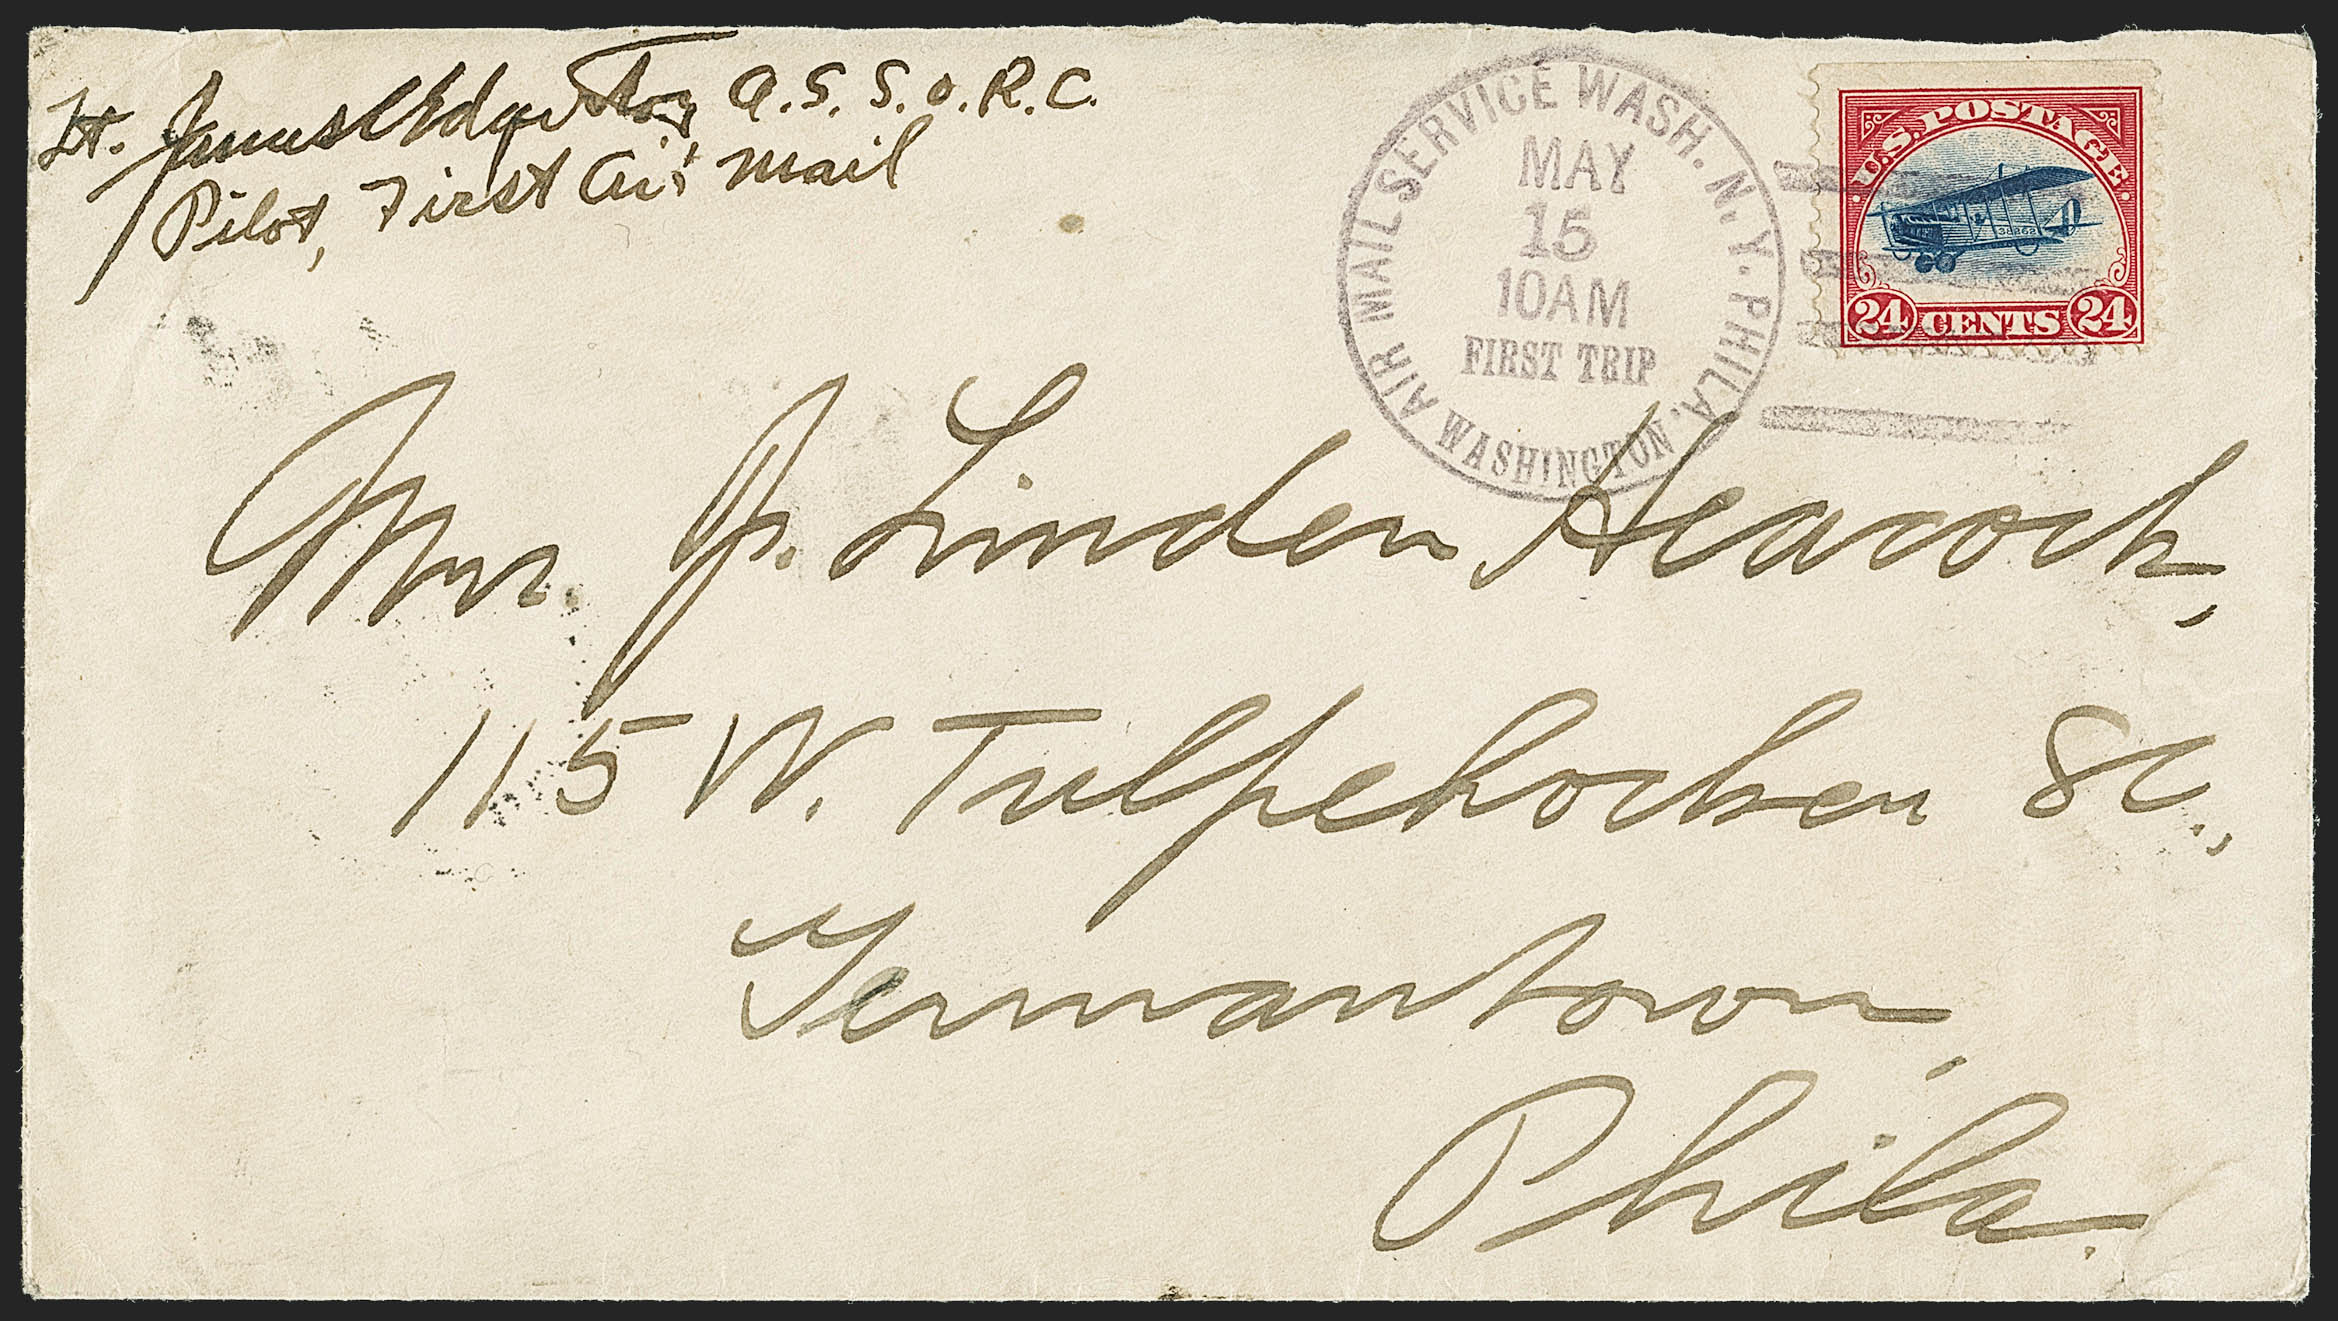 Lt. James C Edgerton, A.S.S.O.R.C.
Pilot, First Air Mail
AIR MAIL SERVICE WASH. N.Y. PHILA.
MAY
15
10AM
FIRST TRIP
WASHINGTON
U.S. POSTAGE
38262
24 CENTS 24
Mr. J. Linden Heacock,
115 W. Tulpehocken St.,
Germantown,
Phila.